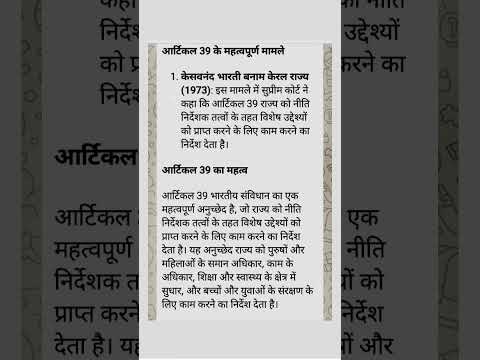 आर्टिकल 39 के महत्वपूर्ण मामले
1. केसवनंद भारती बनाम केरल राज्य
(1973): इस मामले में सुप्रीम कोर्ट ने
कहा कि आर्टिकल 39 राज्य को नीति
निर्देशक तत्वों के तहत विशेष उद्देश्यों
को प्राप्त करने के लिए काम करने का
निर्देश देता है।
आर्टिकल 39 का महत्व
आर्टिकल 39 भारतीय संविधान का एक
महत्वपूर्ण अनुच्छेद है, जो राज्य को नीति
निर्देशक तत्वों के तहत विशेष उद्देश्यों को
प्राप्त करने के लिए काम करने का निर्देश
देता है। यह अनुच्छेद राज्य को पुरुषों और
महिलाओं के समान अधिकार, काम के
अधिकार, शिक्षा और स्वास्थ्य के क्षेत्र में
सुधार, और बच्चों और युवाओं के संरक्षण के
लिए काम करने का निर्देश देता है।